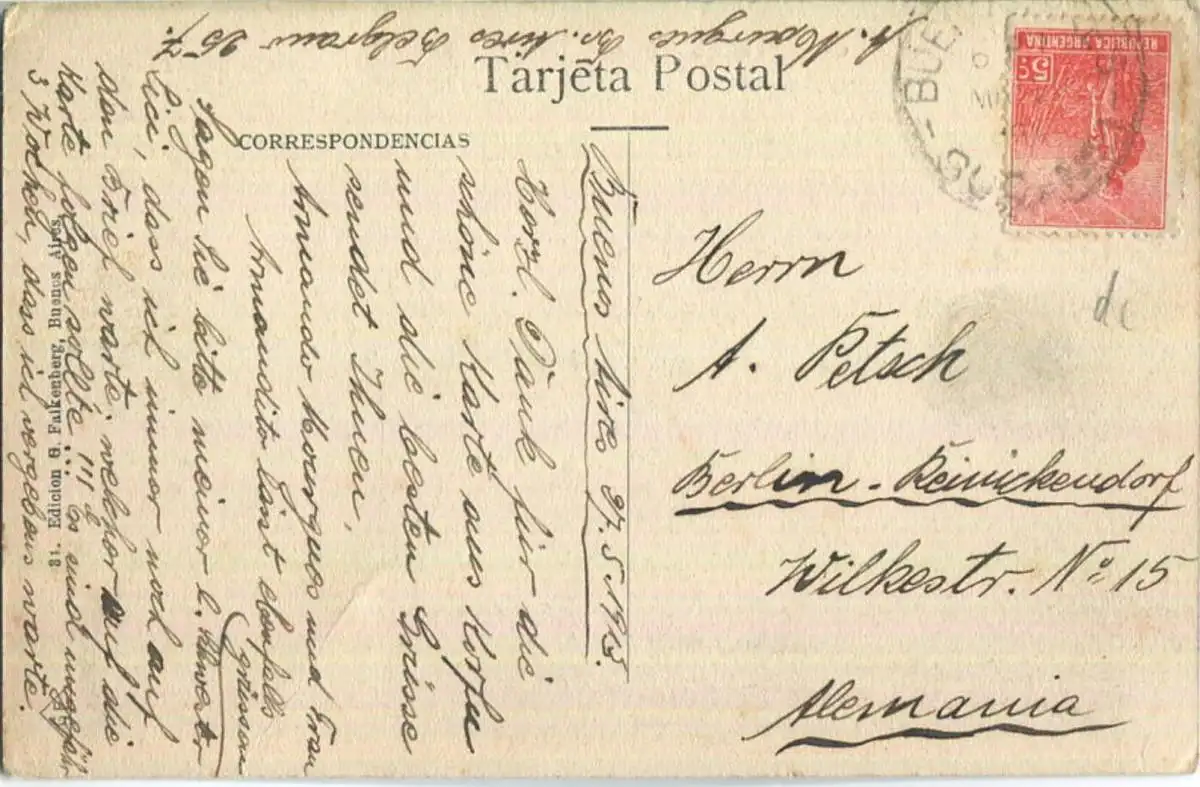 A. Mourgues Bs. Aires Belgrano 257.
Tarjeta Postal
CORRESPONDENCIAS
Buenos Aires 27.5.1915.
Herzl. Dank für die
schöne Karte aus Korfu
und die besten Grüsse
sendet Ihnen,
Armando Mourgues und Frau
Armandito lässt ebenfalls
grüssen
Sagen Sie bitte meiner l.
Lici, dass ich immer noch auf
den Brief warte, welcher auf die
Karte folgen sollte!!! Es sind ungefähr
3 Wochen, dass ich vergebens warte.
31. Edicion G. Falkenberg, Buenos Aires.
REPUBLICA ARGENTINA
5c
BUENOS
Herrn
A. Petsch
Berlin-Reinickendorf
Wilkestr. No 15
Alemania
de